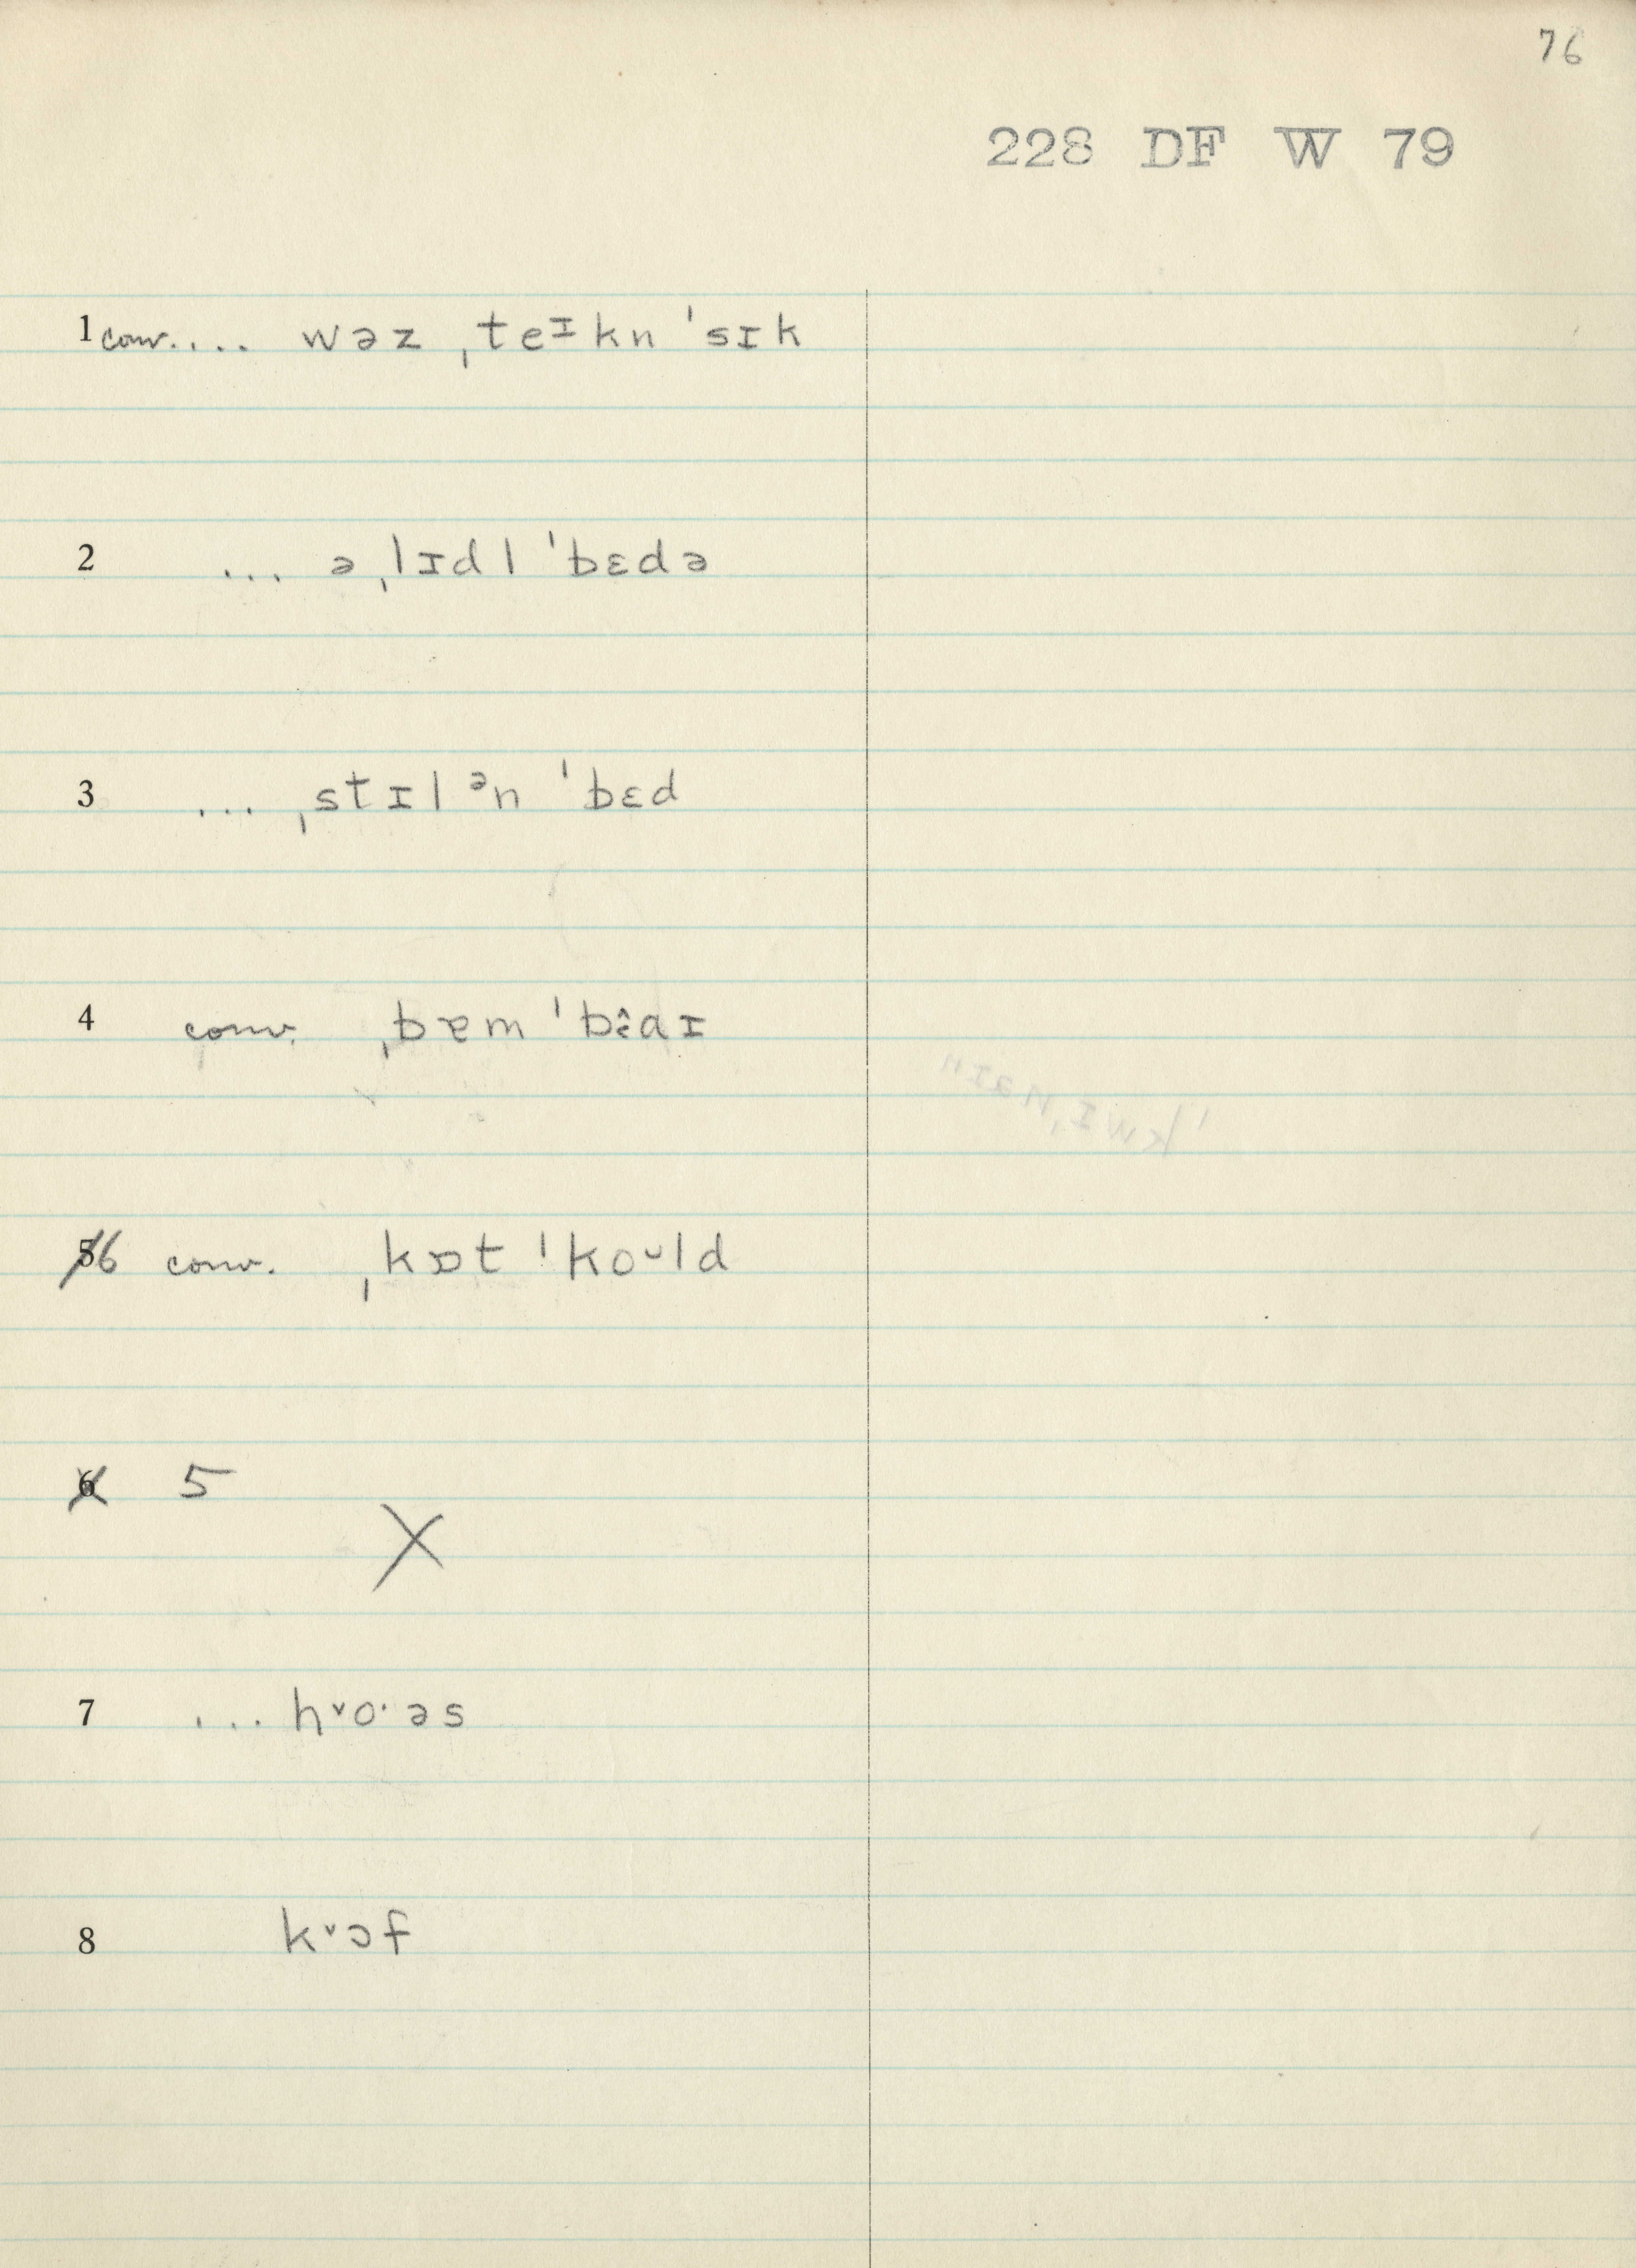 76
228 DF W 79
1 conv. ... wəz ˌteɪkn ˈsɪk
2 ... ə ˌlɪdl ˈbɛdə
3 ... ˌstɪl ᵊn ˈbɛd
4 conv. ˌbɐm ˈbɑɪ
5 6 conv. ˌkɒt ˈkoᴗld
6 5
X
7 ... h˅o·əs
8 k˅ɔf